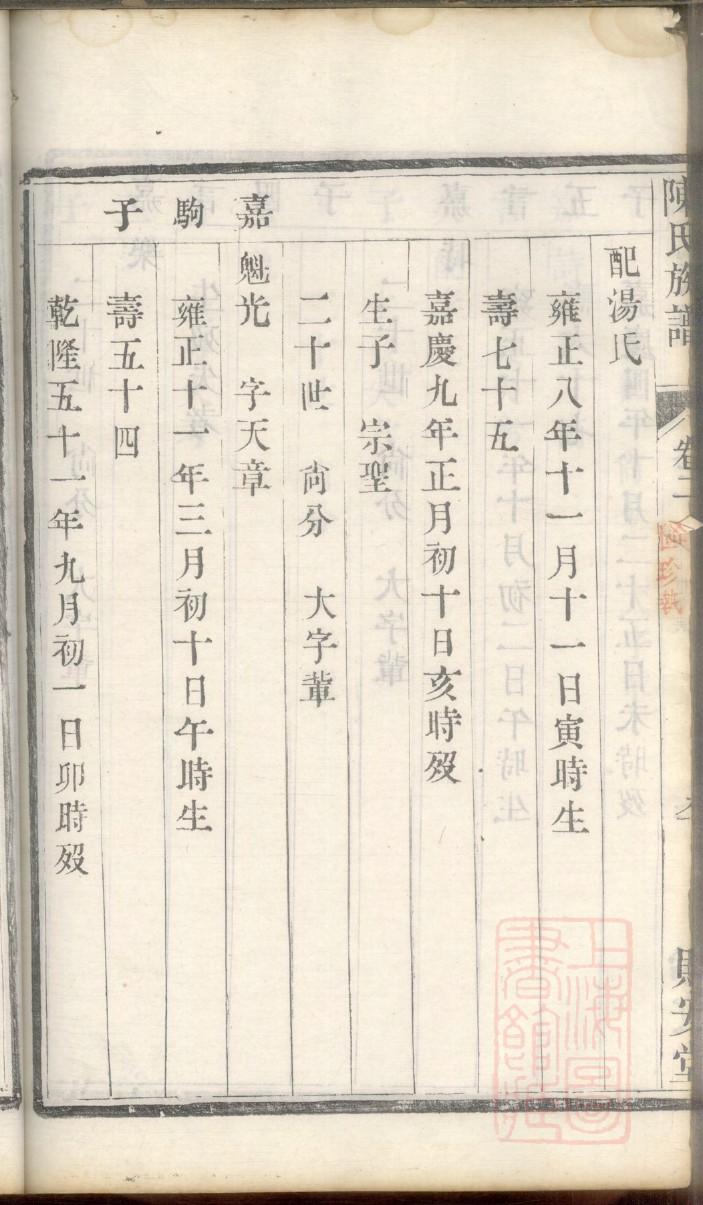 陳氏族譜 卷二
配湯氏
雍正八年十一月十一日寅時生
壽七十五
嘉慶九年正月初十日亥時歿
生子 宗聖
二十世 尙分 大字輩
嘉駒子
魁光 字天章
雍正十一年三月初十日午時生
壽五十四
乾隆五十一年九月初一日卯時歿
上海圖書館藏